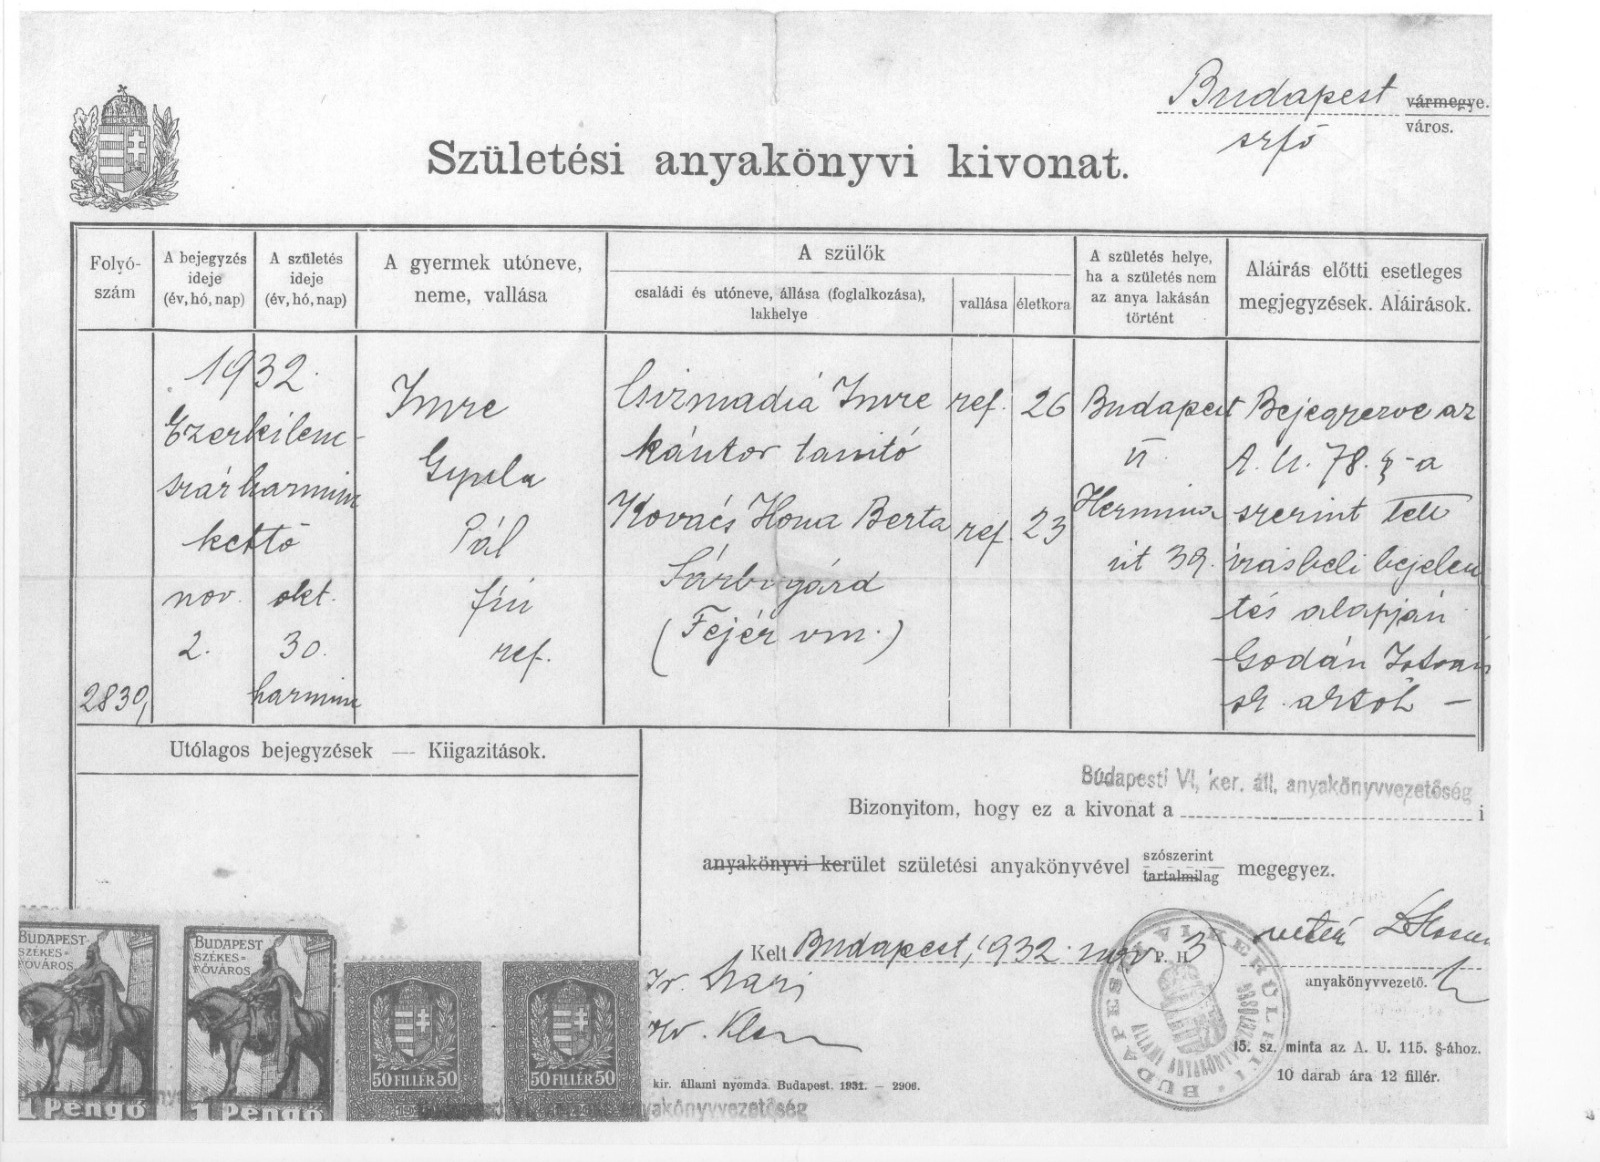 Budapest vármegye.
szfő város.
Születési anyakönyvi kivonat.
Folyó-
szám
A bejegyzés
ideje
(év, hó, nap)
A születés
ideje
(év, hó, nap)
A gyermek utóneve,
neme, vallása
A szülők
családi és utóneve, állása (foglalkozása),
lakhelye
vallása
életkora
A születés helye,
ha a születés nem
az anya lakásán
történt
Aláírás előtti esetleges
megjegyzések. Aláírások.
2830,
1932.
Ezerkilenc-
száz harminc
kettő
nov. okt.
2. 30.
harminc
Imre
Gyula
Pál
fiú
ref.
Csizmadiá Imre ref. 26
kántor tanító
Kovács Ilona Berta ref. 23
Sárbogárd
(Fejér vm.)
Budapest
VI.
Hermina
út 39.
Bejegyezve az
A. U. 78. §-a
szerint tett
írásbeli bejelen
tés alapján
Godán István
sk.
Utólagos bejegyzések — Kiigazitások.
Budapesti VI. ker. áll. anyakönyvvezetőség
Bizonyitom, hogy ez a kivonat a i
anyakönyvi kerület születési anyakönyvével szószerint
tartalmilag megegyez.
Kelt Budapest, 1932. nov. 3
P. H.
anyakönyvvezető. h
BUDAPEST VI KERÜLETI
ÁLLAMI ANYAKÖNYV
15. sz. minta az A. U. 115. §-ához.
10 darab ára 12 fillér.
kir. állami nyomda. Budapest. 1931. — 2906.
BUDAPEST-
SZÉKES=
FŐVÁROS
1 Pengő
BUDAPEST
SZÉKES=
FŐVÁROS
1 Pengő
50 FILLÉR 50
50 FILLÉR 50
Budapesti VI. ker. áll. anyakönyvvezetőség